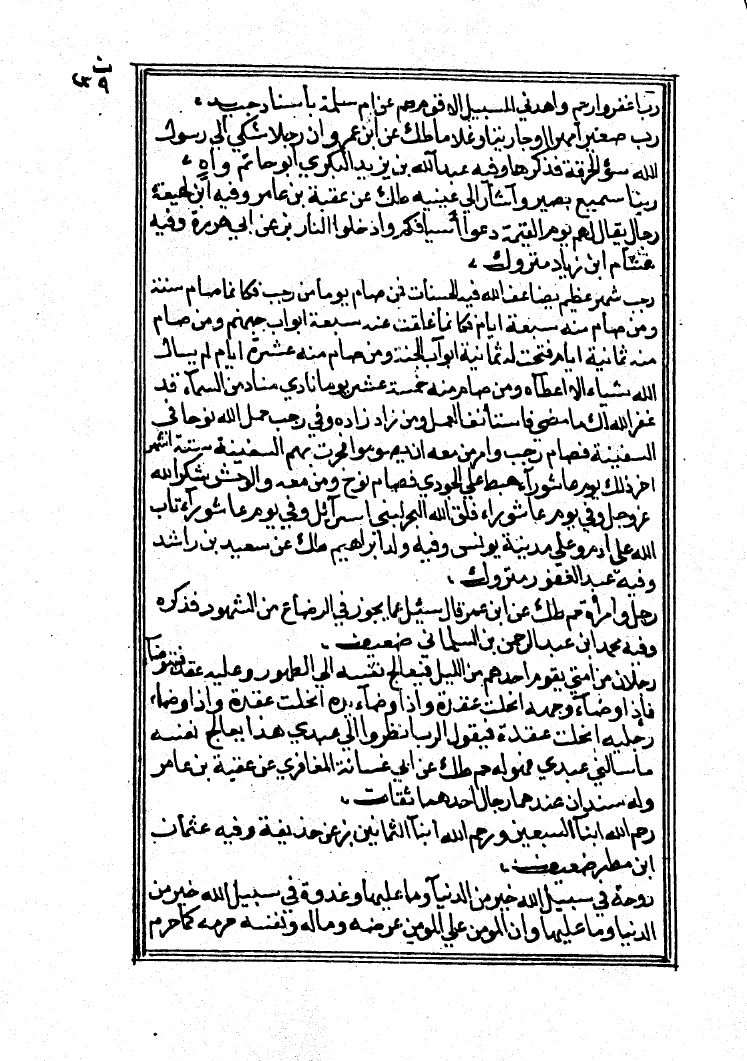 رب اغفر وارحم واهدني السبيل الاقوم حم عن ام سلمة باسناد جيد
رب صغير امهر الوجارينا وغلاما طك عن ابن عمر وان رجلا شكي الي رسول
الله سؤ الحرقة فذكرها وفيه عبد الله بن يزيد البكري ابو حاتم واه
ربنا سميع بصير واشار الي عينيه طك عن عقبة بن عامر وفيه ابن لهيعة
رجال يقال لهم يوم القيمة دعوا أسيافكم وادخلوا النار بز عن ابي هريرة وفيه
هشام ابن زياد متروك
رجب شهر عظيم يضاعف الله فيه الحسنات فمن صام يوما من رجب فكانما صام سنة
ومن صام منه سبعة ايام فكانما غلقت عنه سبعة ابواب جهنم ومن صام
منه ثمانية ايام فتحت له ثمانية ابواب الجنة ومن صام منه عشرة ايام لم يسال
الله شياء الا اعطاه ومن صام منه خمسة عشر يوما نادي مناد من السماء قد
غفر الله لك ما مضي فاستانف العمل ومن زاد زاده وفي رجب حمل الله نوحا في
السفينة فصام رجب وامر من معه ان يصوموا فجرت بهم السفينة ستة اشهر
اخر ذلك يوم عاشوراء هبط علي الجودي فصام نوح ومن معه والوحش شكرا لله
عز وجل وفي يوم عاشوراء فلق الله البحر لبني اسرآئل وفي يوم عاشورآء تاب
الله علي ادم وعلي مدينة يونس وفيه ولد ابراهيم طك عن سعيد بن راشد
وفيه عبد الغفور متروك
رجل وامرأة حم طك عن ابن عمر قال سئيل عما يجوز في الرضاع من الشهود فذكره
وفيه محمد ابن عبد الرحمن بن السلماني ضعيف
رجلان من امتي يقوم احدهم من الليل فيعالج نفسه الي الطهور وعليه عقد فيتوضأ
فاذا وضآء وجهه انحلت عقدة واذا وضآء يده انحلت عقدة واذا وضاء
رجليه انحلت عقدة فيقول الرب انظروا الي عبدي هذا يعالج نفسه
ما سالني عبدي فهو له حم طك عن ابي عشانة المعافري عن عقبة بن عامر
وله سندان عندهما رجال احدهما ثقات
رحم الله ابنآ السبعين ورحم الله ابنآ الثمانين بز عن حذيفة وفيه عثمان
ابن مطر ضعيف
روحة في سبيل الله خير من الدنيا وما عليها وغدوة في سبيل الله خير من
الدنيا وما عليها وان المومن علي المومن عرضه وماله ونفسه حرمه كما حرم